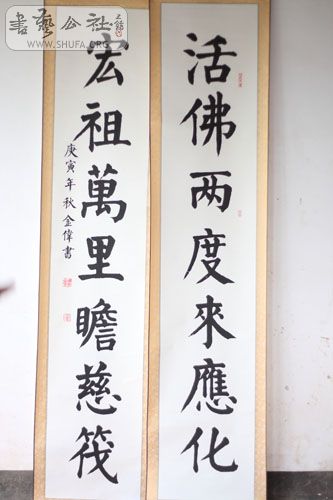 活佛两度來應化
宏祖萬里瞻慈筏
庚寅年秋金偉書
書藝公社
WWW.SHUFA.ORG